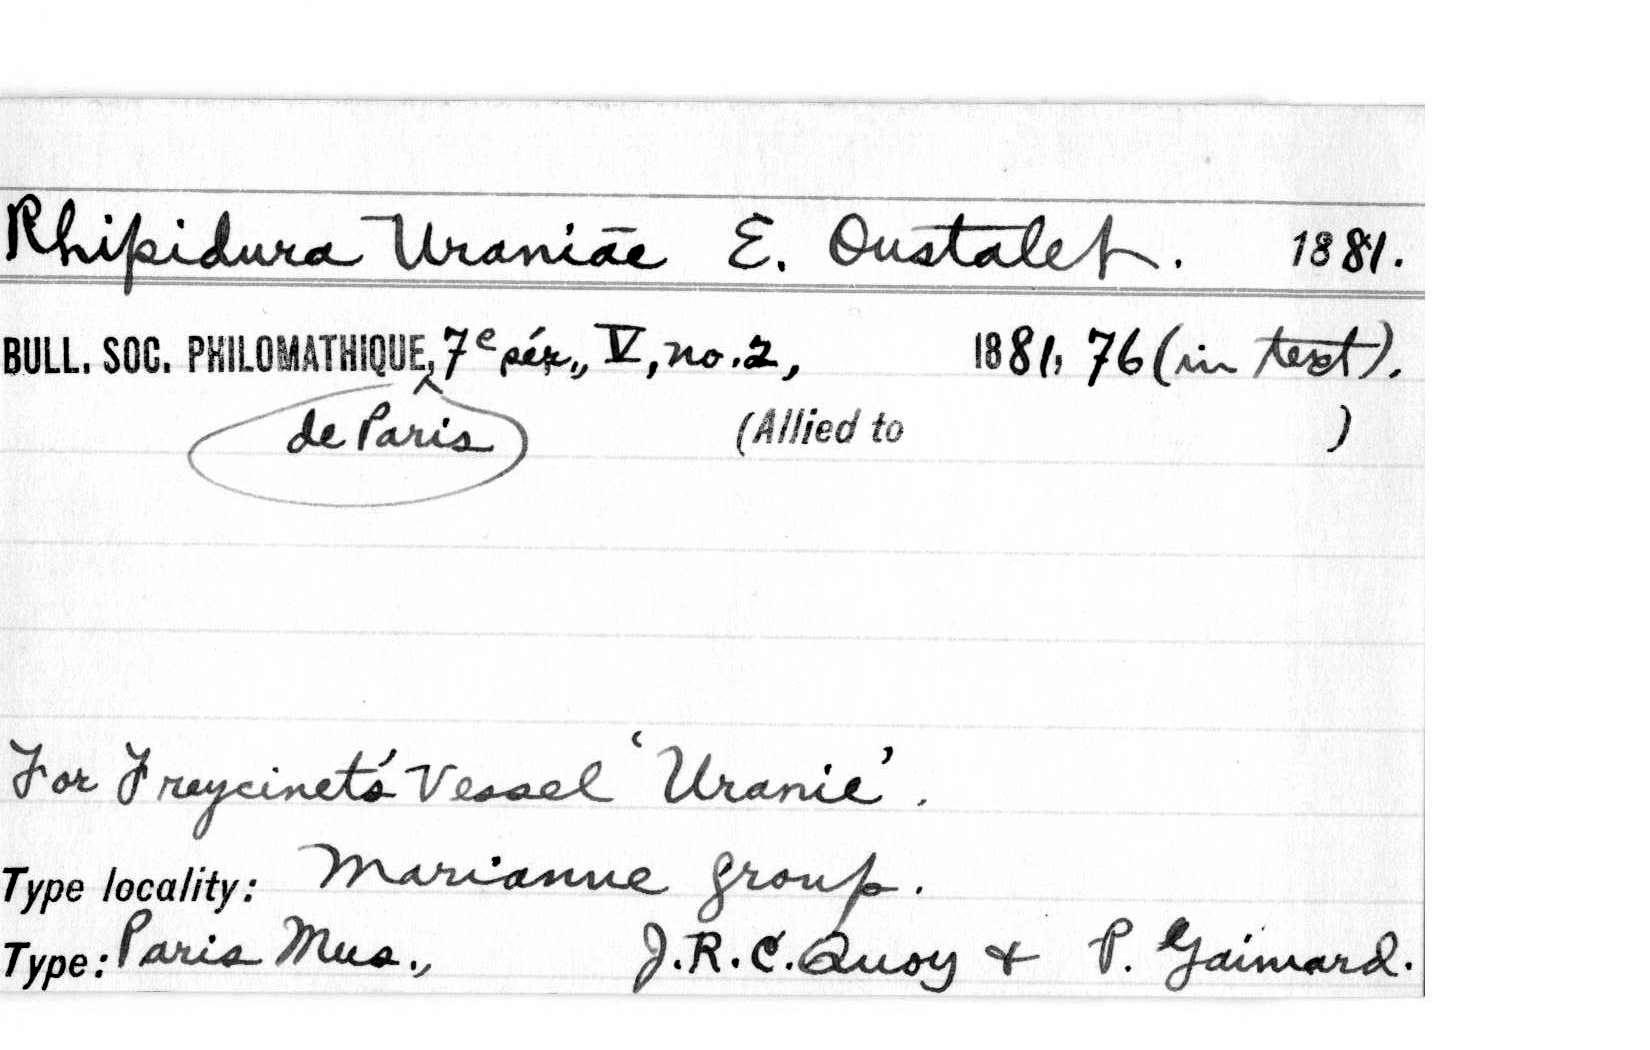 Rhipidura Uraniae E. Oustalet. 1881.
BULL. SOC. PHILOMATHIQUE, 7e sér., V, no. 2, 1881, 76 (in text).
de Paris (Allied to )
For Freycinet's Vessel 'Uranie'.
Type locality: Marianne group.
Type: Paris Mus., J.R.C. Quoy + P. Gaimard.